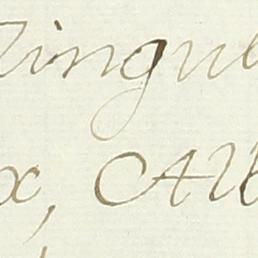 Zingul
x, Alb